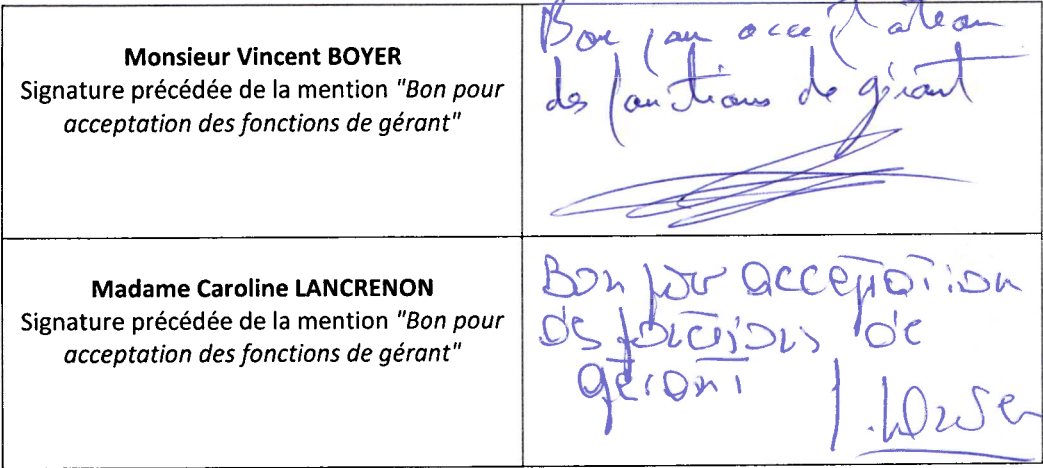 Monsieur Vincent BOYER
Signature précédée de la mention "Bon pour
acceptation des fonctions de gérant"
Bon pour acceptation
des fonctions de gérant
Madame Caroline LANCRENON
Signature précédée de la mention "Bon pour
acceptation des fonctions de gérant"
Bon pour acceptation
des fonctions de
gérant